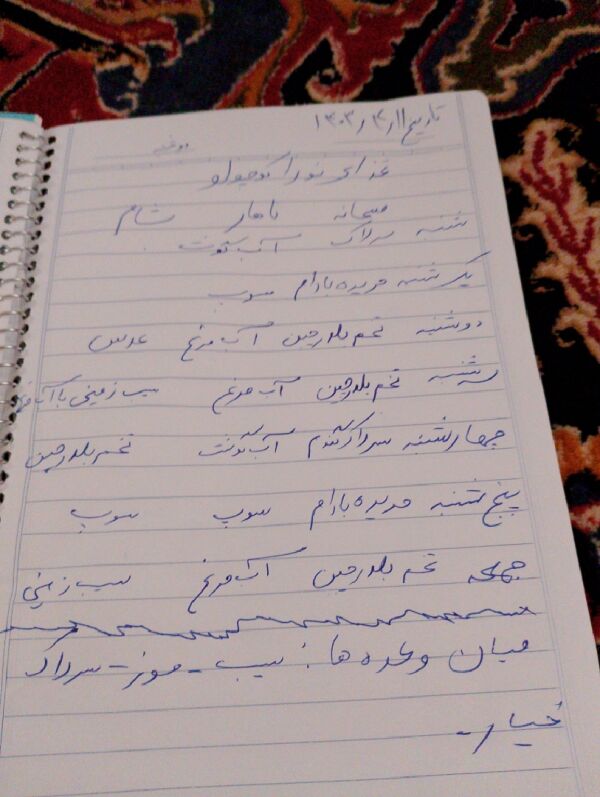 تاریخ ۱۱ / ۳ / ۱۴۰۳
غذای نوزاد کوچولو
صبحانه ناهار شام
شنبه سرلاک آب گوشت
یک شنبه حریره بادام سوپ
دوشنبه تخم بلدرچین آب مرغ عدس
سه شنبه تخم بلدرچین آب مرغ سیب زمینی با آب
چهارشنبه سرلاک گندم آب گوشت تخم بلدرچین
پنج شنبه حریره بادام سوپ سوپ
جمعه تخم بلدرچین آب مرغ سیب زمینی
میان وعده ها : سیب - موز - سرلاک
خیار -